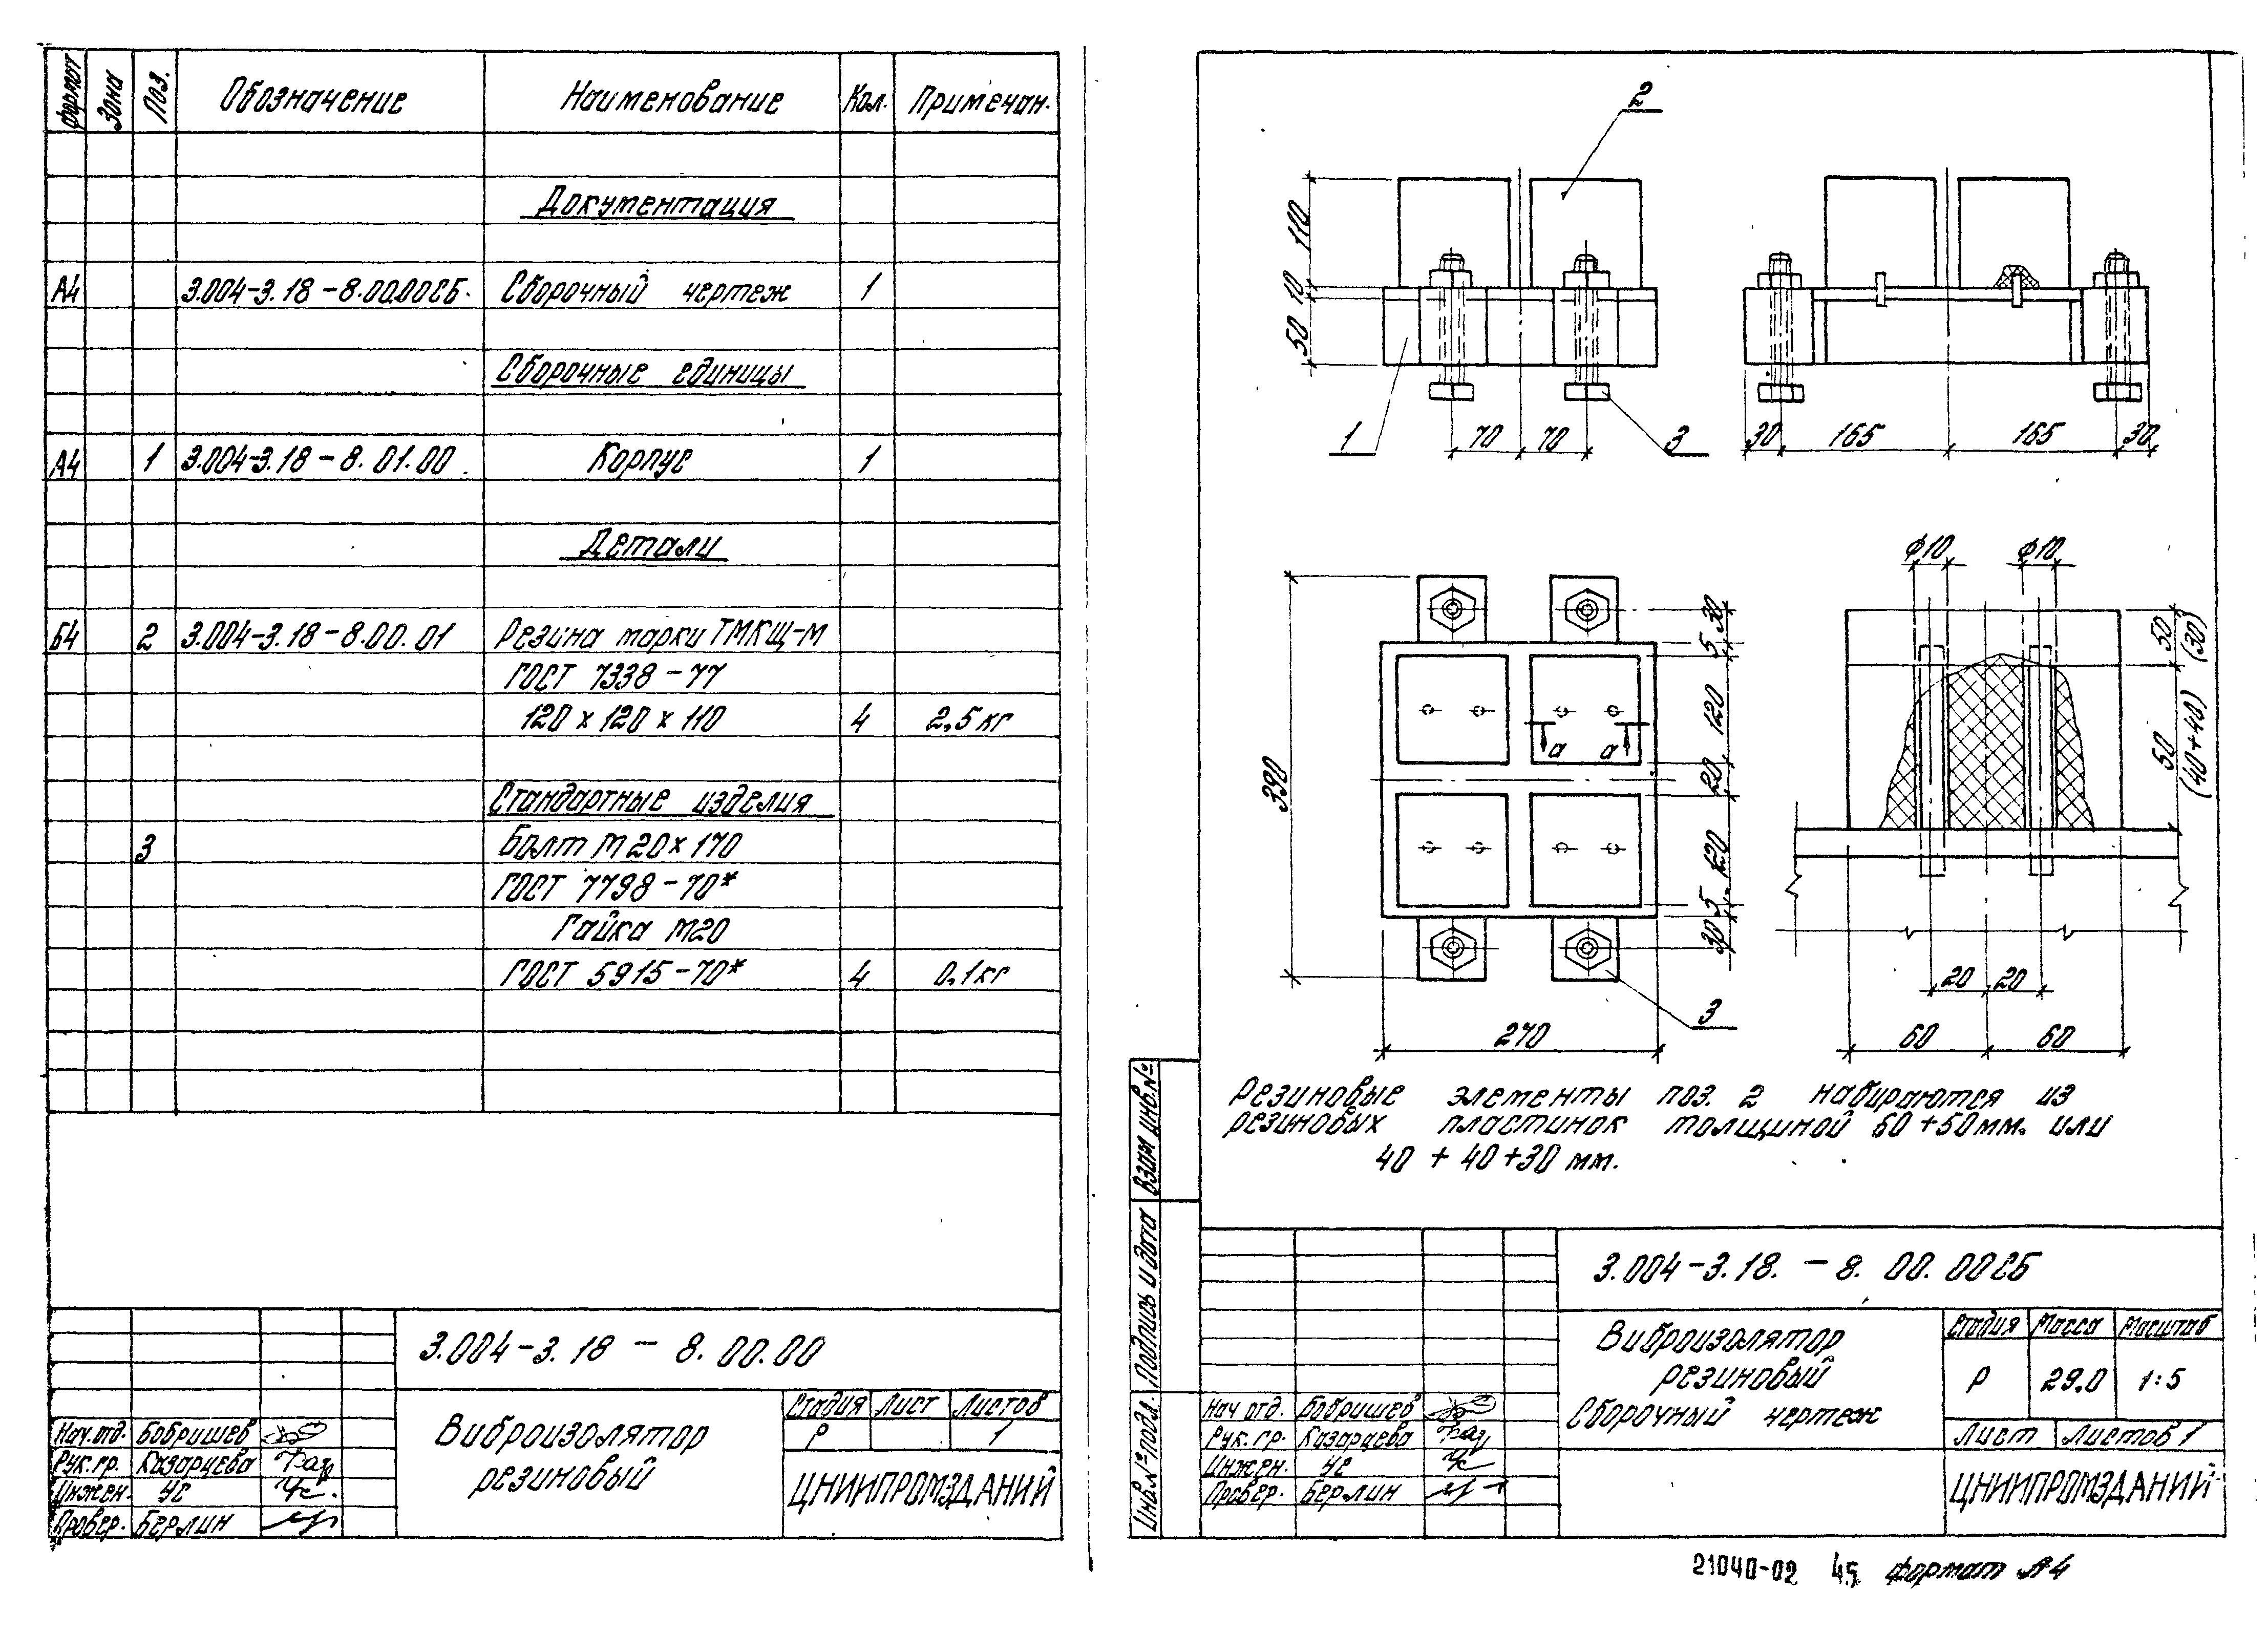 формат Зона Поз. Обозначение Наименование Кол. Примечан.
Документация
А4 3.004-3.18-8.00.00СБ. Сборочный чертеж 1
Сборочные единицы
А4 1 3.004-3.18-8.01.00. Корпус 1
Детали
Б4 2 3.004-3.18-8.00.01 Резина марки ТМКЩ-М
ГОСТ 7338-77
120 х 120 х 110 4 2,5 кг
Стандартные изделия
3 Болт М20х170
ГОСТ 7798-70*
Гайка М20
ГОСТ 5915-70* 4 0,1 кг
3.004-3.18 - 8.00.00
Виброизолятор
резиновый
Стадия Лист Листов
Р 1
ЦНИИПРОМЗДАНИЙ
Нач.отд. Бобришев
Рук.гр. Казарцева
Инжен. Ус
Провер. Берлин
2
110
10
50
1
70 70
3
30 165 165 30
390
30
5
120
20
120
5
30
а а
3
270
Ф10 Ф10
50 (30)
50 (40+40)
20 20
60 60
Резиновые элементы поз. 2 набираются из
резиновых пластинок толщиной 60+50мм. или
40 + 40+30 мм.
Взам инв.№
Подпись и дата
Инв.№ подл.
3.004-3.18. - 8. 00. 00СБ
Виброизолятор
резиновый
Сборочный чертеж
Стадия Масса Масштаб
Р 29.0 1:5
Лист Листов 1
ЦНИИПРОМЗДАНИЙ
Нач отд. Бобришев
Рук. гр. Казарцева
Инжен. Ус
Провер. Берлин
21040-02 45 формат А4